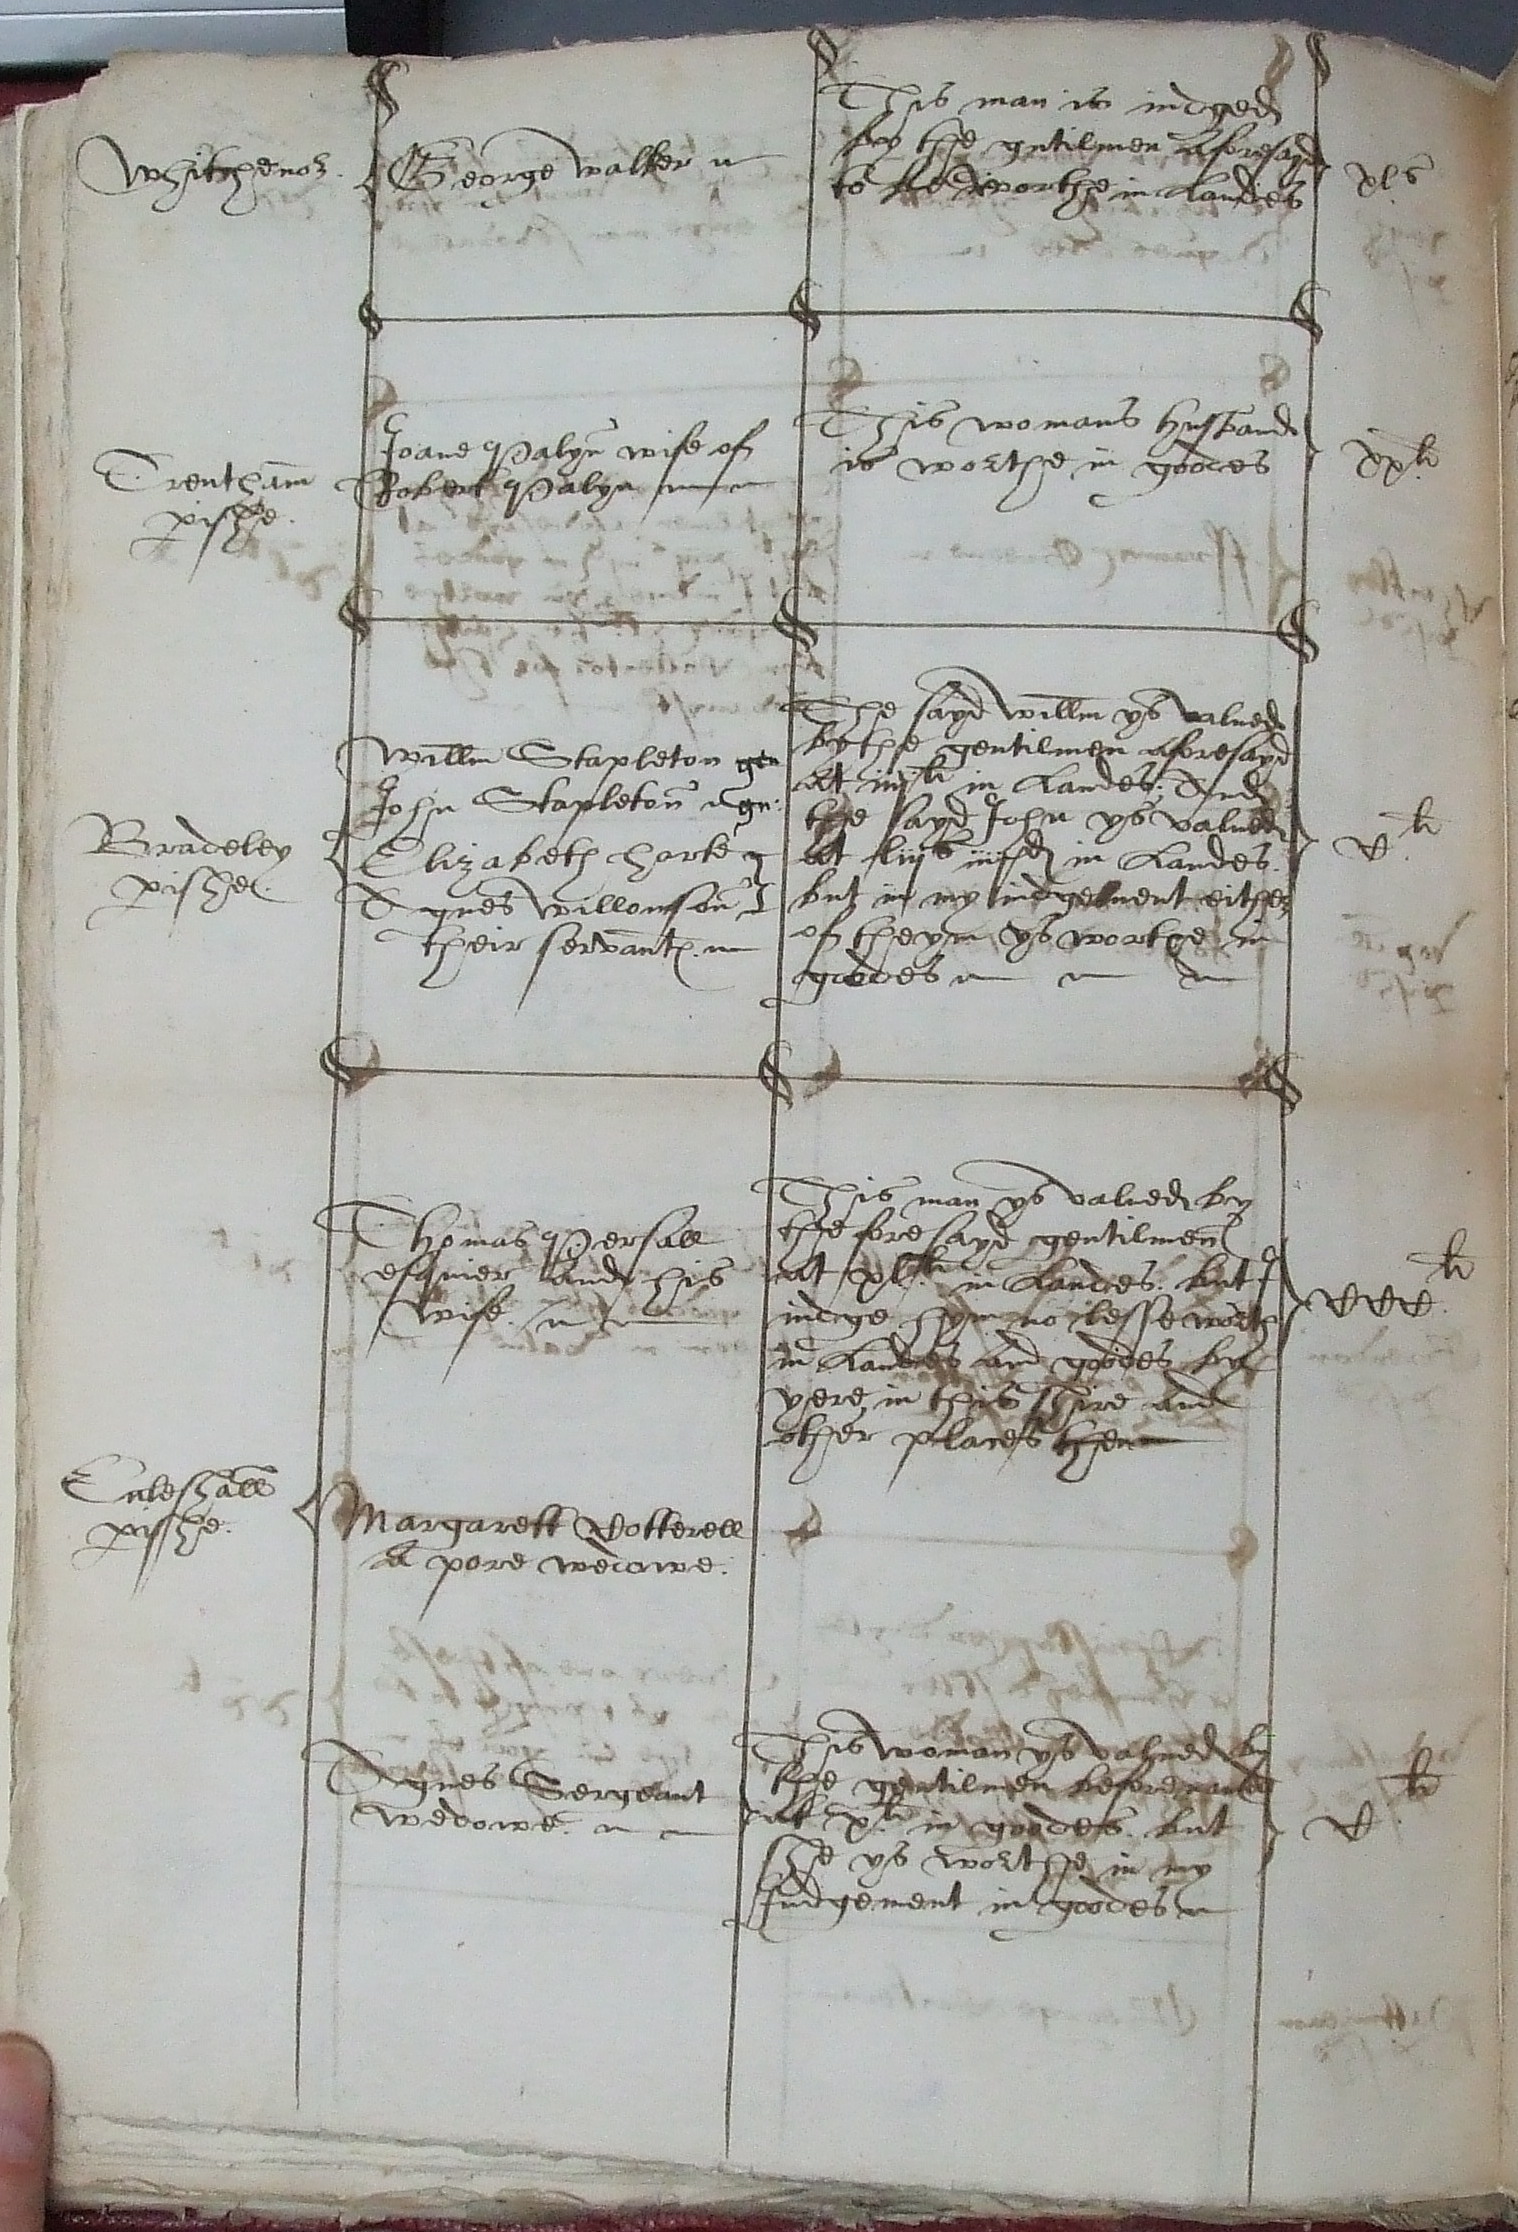 Whitchenor.
George Walker
This man is iudged
by the gentilmen aforesayd
to be worthe in Landes
xls
Trentham
pishe.
Joane Malyn wife of
Robert Malyn
This womans husband
is worthe in goodes
xxli
Bradeley
pishe.
Willm Stapleton gen
John Stapleton gn:
Elizabeth Horte
Agnes Willomson
their servant.
The sayd Willm ys valued
by the gentilmen aforesayd
at iiijli in Landes. And
the sayd John ys valued
at liijs iiijd in Landes.
but in my iudgement either
of theym ys worthe in
goodes
vli
Eccleshall
pishe.
Thomas Persall
esquier and his
wife.
This man ys valued by
the foresayd gentilmen
at xlli in Landes. but I
iudge hym no lesse worth
in Landes and goodes by
yere in this shire and
other places then
CCCli
Margarett Cotterell
A pore wedowe.
Agnes Sergeant
wedowe.
This woman ys valued by
the gentilmen before named
at xli in goodes. but
she ys worthe in my
Judgement in goodes
Cli